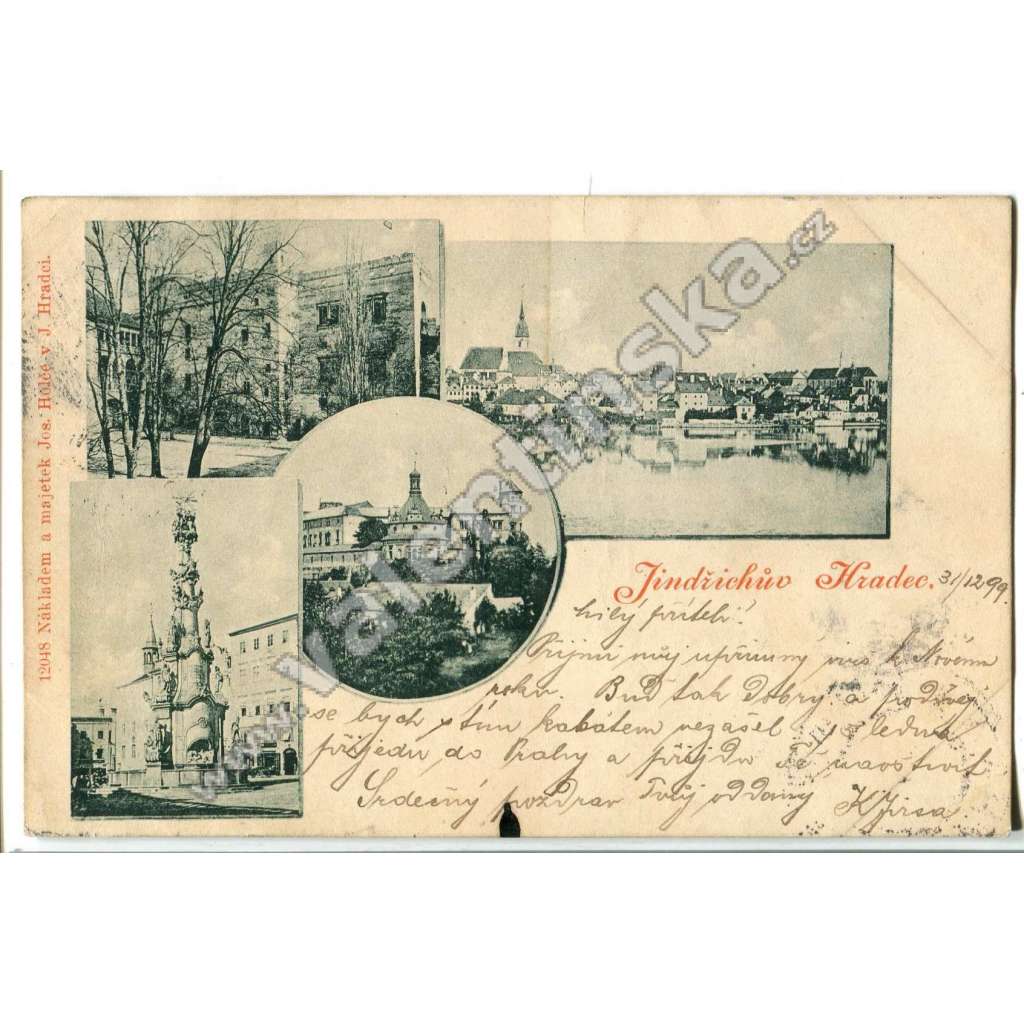 12048 Nákladem a majetek Jos. Holče v J. Hradci.
www.valentinska.cz
Jindřichův Hradec. 31/12 99.
Milý příteli!
Přijmi můj upřímný k Novému
roku. Buď tak dobrý a podívej
se bych s tím kabátem nezašel v lednu
přijedu do Prahy a přijdu Tě navštívit
Srdečný pozdrav Tvůj oddaný K Jirsa